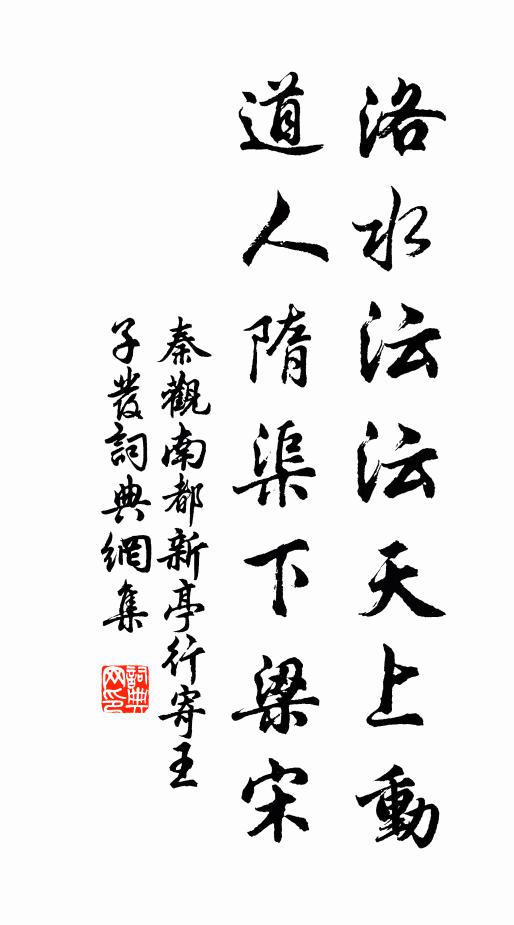 洛水沄沄天上動
道人隋渠下梁宋
秦觀南都新亭行寄王
子發詞典網集
詞典
网印